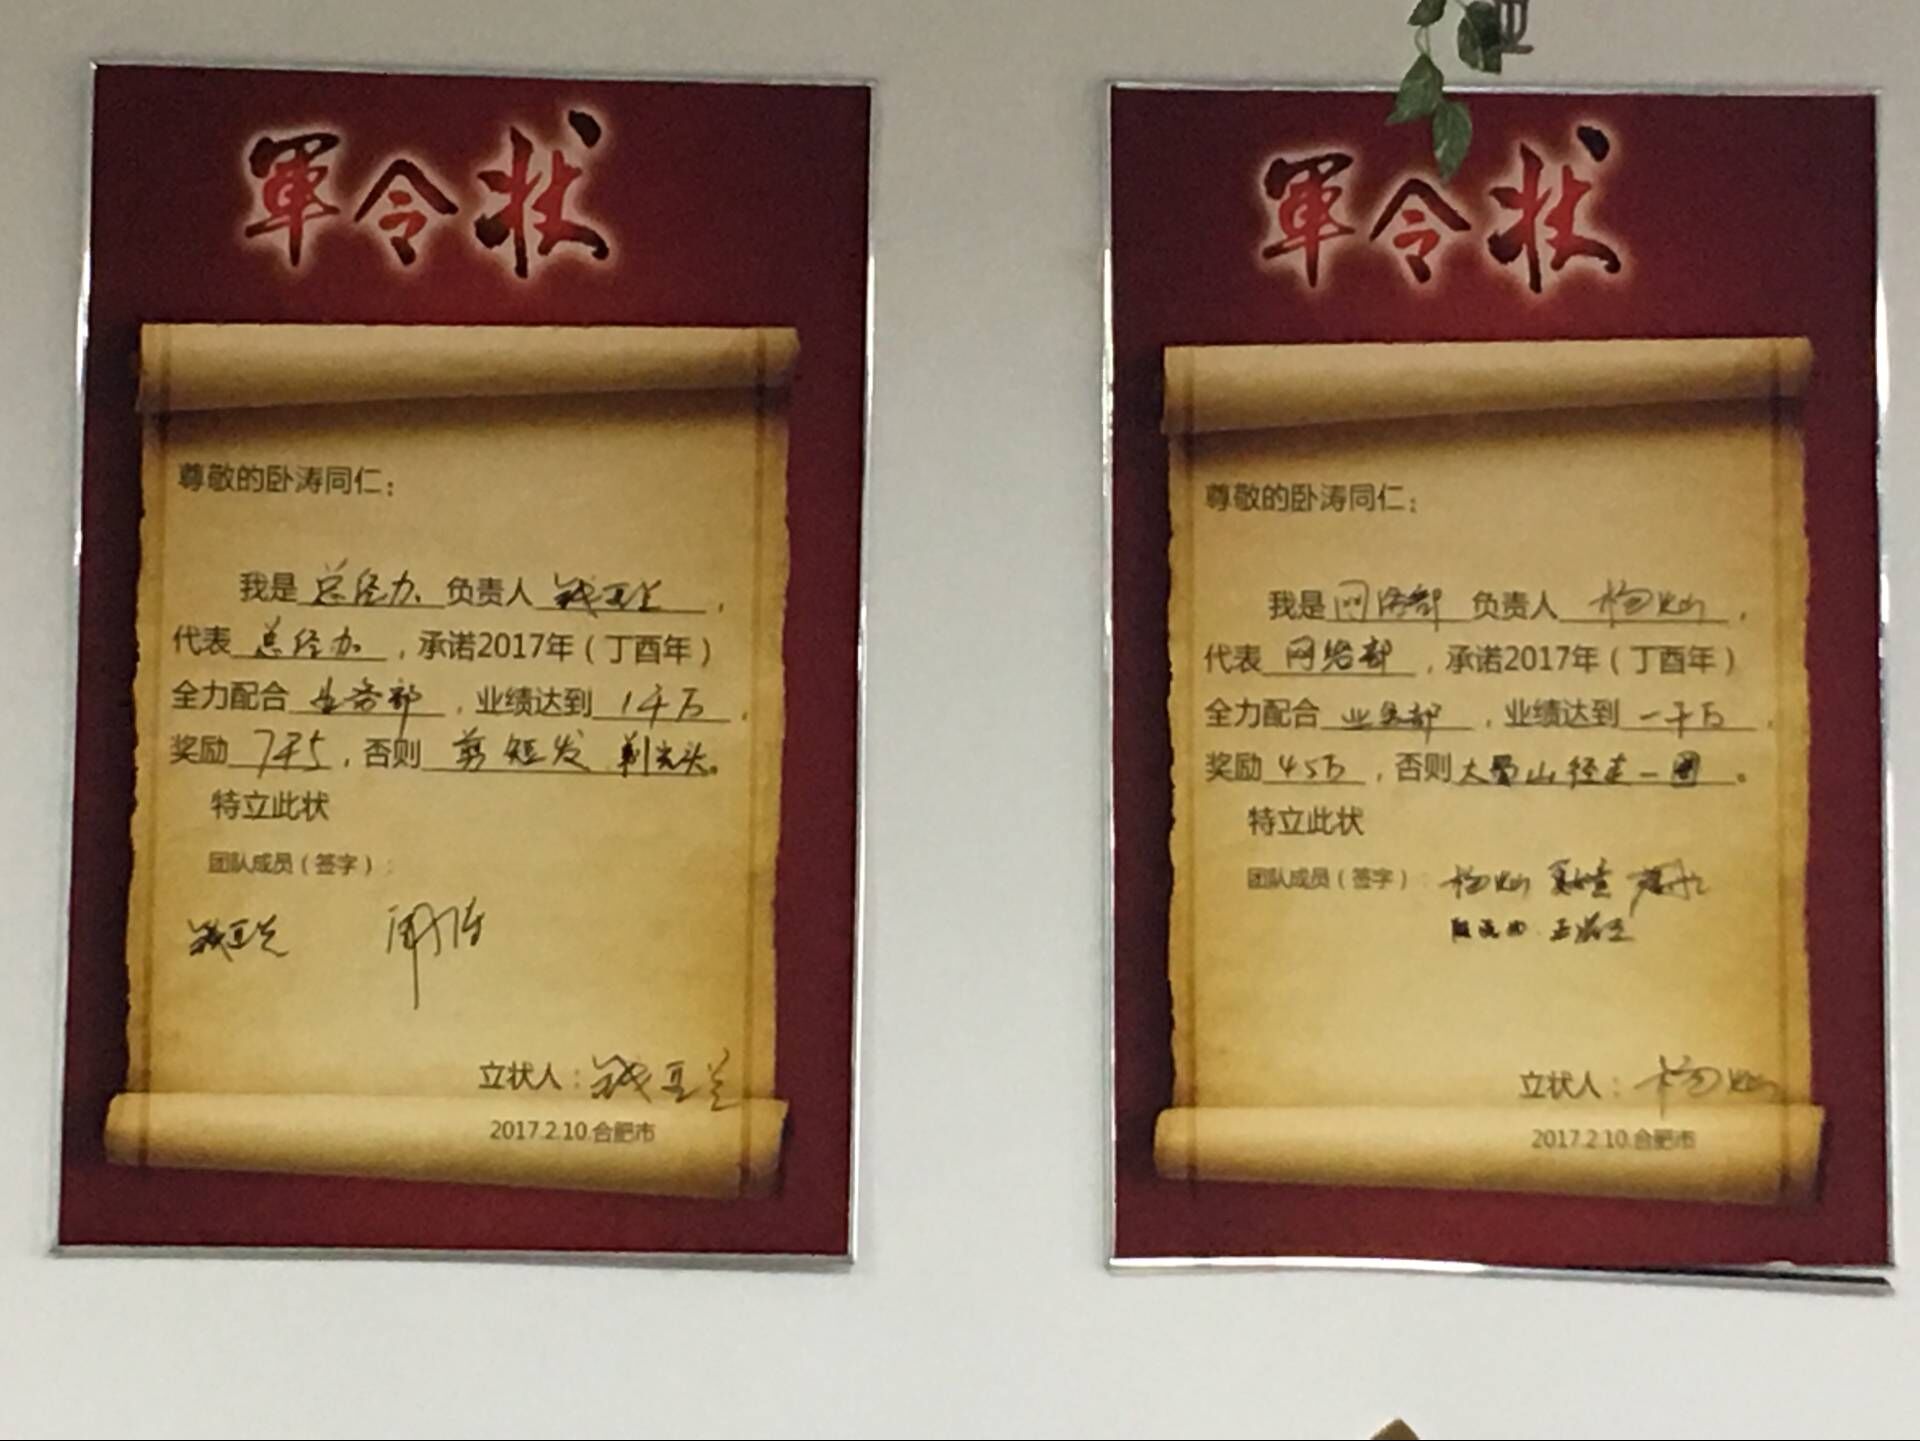 軍令状
尊敬的卧涛同仁：
我是 总经办 负责人 钱亚兰，
代表 总经办，承诺2017年（丁酉年）
全力配合 业务部，业绩达到 1千万，
奖励 7千5，否则 剪短发 剃光头。
特立此状
团队成员（签字）：
钱亚兰
立状人：钱亚兰
2017.2.10.合肥市
軍令状
尊敬的卧涛同仁：
我是 网络部 负责人 杨灿，
代表 网络部，承诺2017年（丁酉年）
全力配合 业务部，业绩达到 一千万，
奖励 45万，否则 大蜀山径走一圈。
特立此状
团队成员（签字）：杨灿
立状人：杨灿
2017.2.10.合肥市